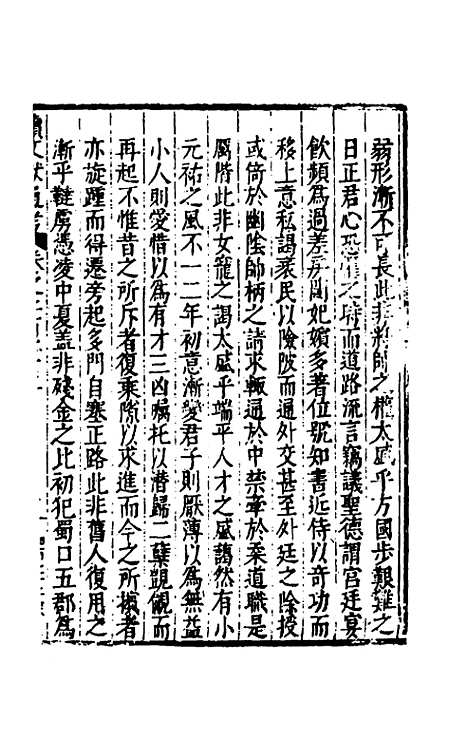 弱形漸不可長此非將帥之權太盛乎方國步艱難之
日正君心恐懼之時而道路流言竊議聖德謂宮廷宴
飲頻爲過差房闥妃嬪多著位號知書近侍以奇功而
移上意私謁褻民以險陂而通外交甚至外廷之除授
或倚於幽陰帥柄之請求輒通於中禁牽於柔道職是
厲階此非女寵之謁太盛乎端平人才之盛藹然有小
元祐之風不一二年初意漸變君子則厭薄以爲無益
小人則愛惜以爲有才三凶囑托以潛歸二孽覬覦而
再起不惟昔之所斥者復乘隙以求進而今之所擯者
亦旋踵而得遷旁起多門自塞正路此非舊人復用之
漸乎韃虜憑凌中夏蓋非殘金之比初犯蜀口五郡爲
續文獻通考